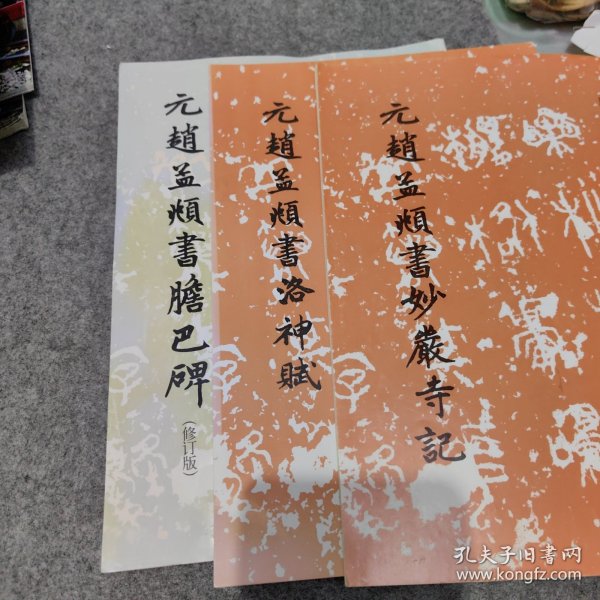 元趙孟頫書膽巴碑
(修订版)
元趙孟頫書洛神賦
元趙孟頫書妙嚴寺記
孔夫子旧书网
www.kongfz.com